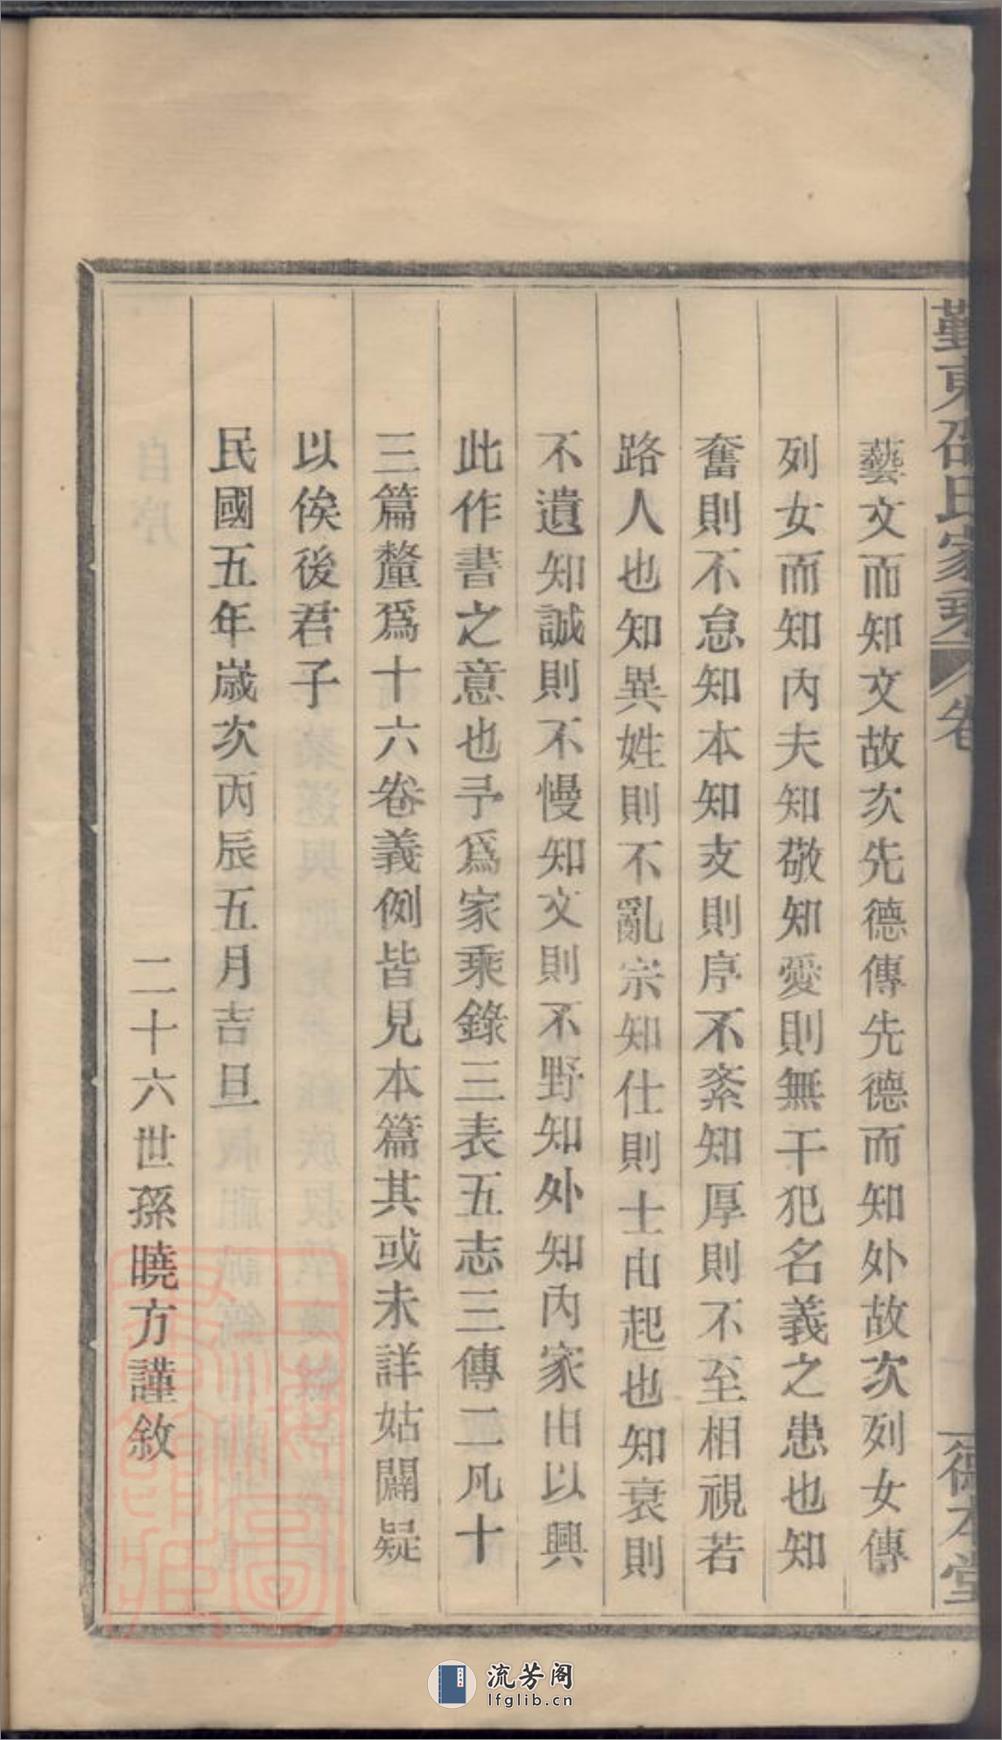 勤東邵氏家乘 卷 一 德本堂
藝文而知文故次先德傳先德而知外故次列女傳
列女而知內夫知敬知愛則無干犯名義之患也知
奮則不怠知本知支則序不紊知厚則不至相視若
路人也知異姓則不亂宗知仕則士由起也知衰則
不遺知誠則不慢知文則不野知外知內家由以興
此作書之意也予爲家乘錄三表五志三傳二凡十
三篇釐爲十六卷義例皆見本篇其或未詳姑闕疑
以俟後君子
民國五年歲次丙辰五月吉旦
二十六世孫曉方謹敘
流芳阁
lfglib.cn